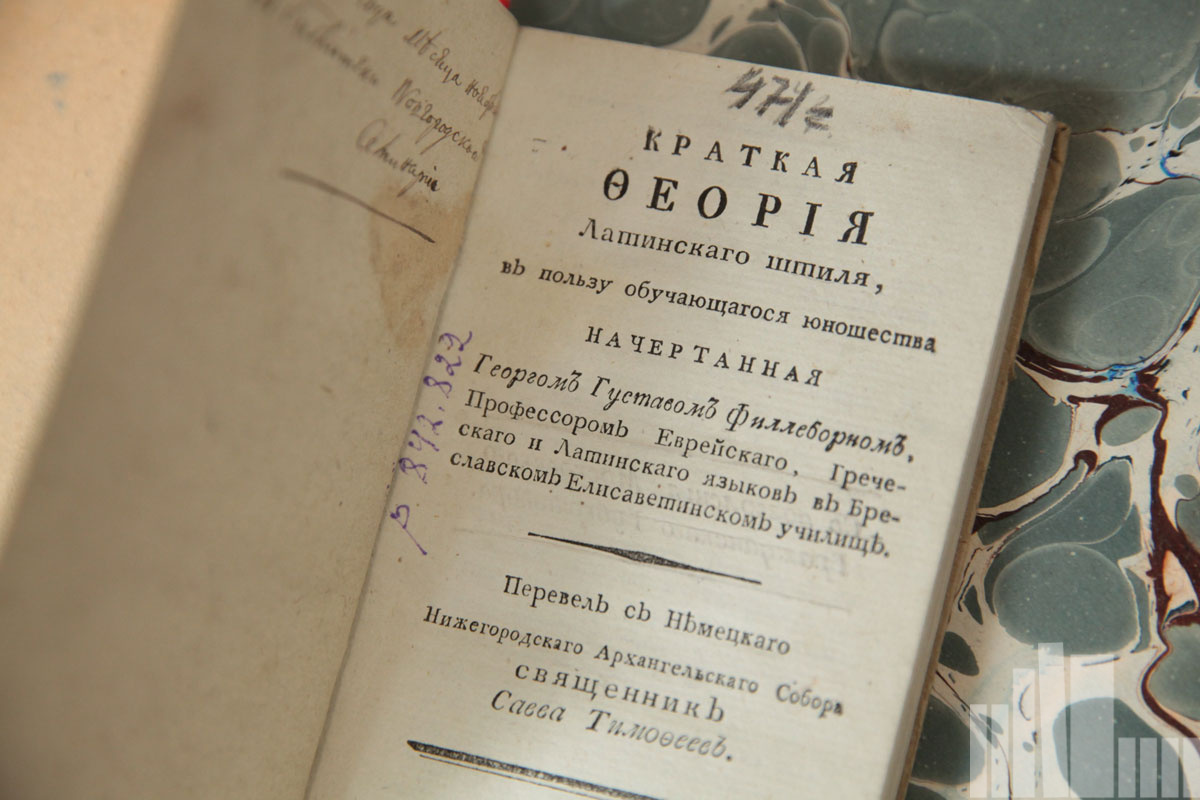 мѣсяца
474
КРАТКАЯ
ѲЕОРІЯ
Латинскаго штиля,
въ пользу обучающагося юношества
НАЧЕРТАННАЯ
Георгомъ Густавомъ Филлеборномъ,
Профессоромъ Еврейскаго, Грече-
скаго и Латинскаго языковъ въ Бре-
славскомъ Елисаветинскомъ училищѣ.
842.822
Перевелъ съ Нѣмецкаго
Нижегородскаго Архангельскаго Собора
священникъ
Савва Тимоѳеевъ.